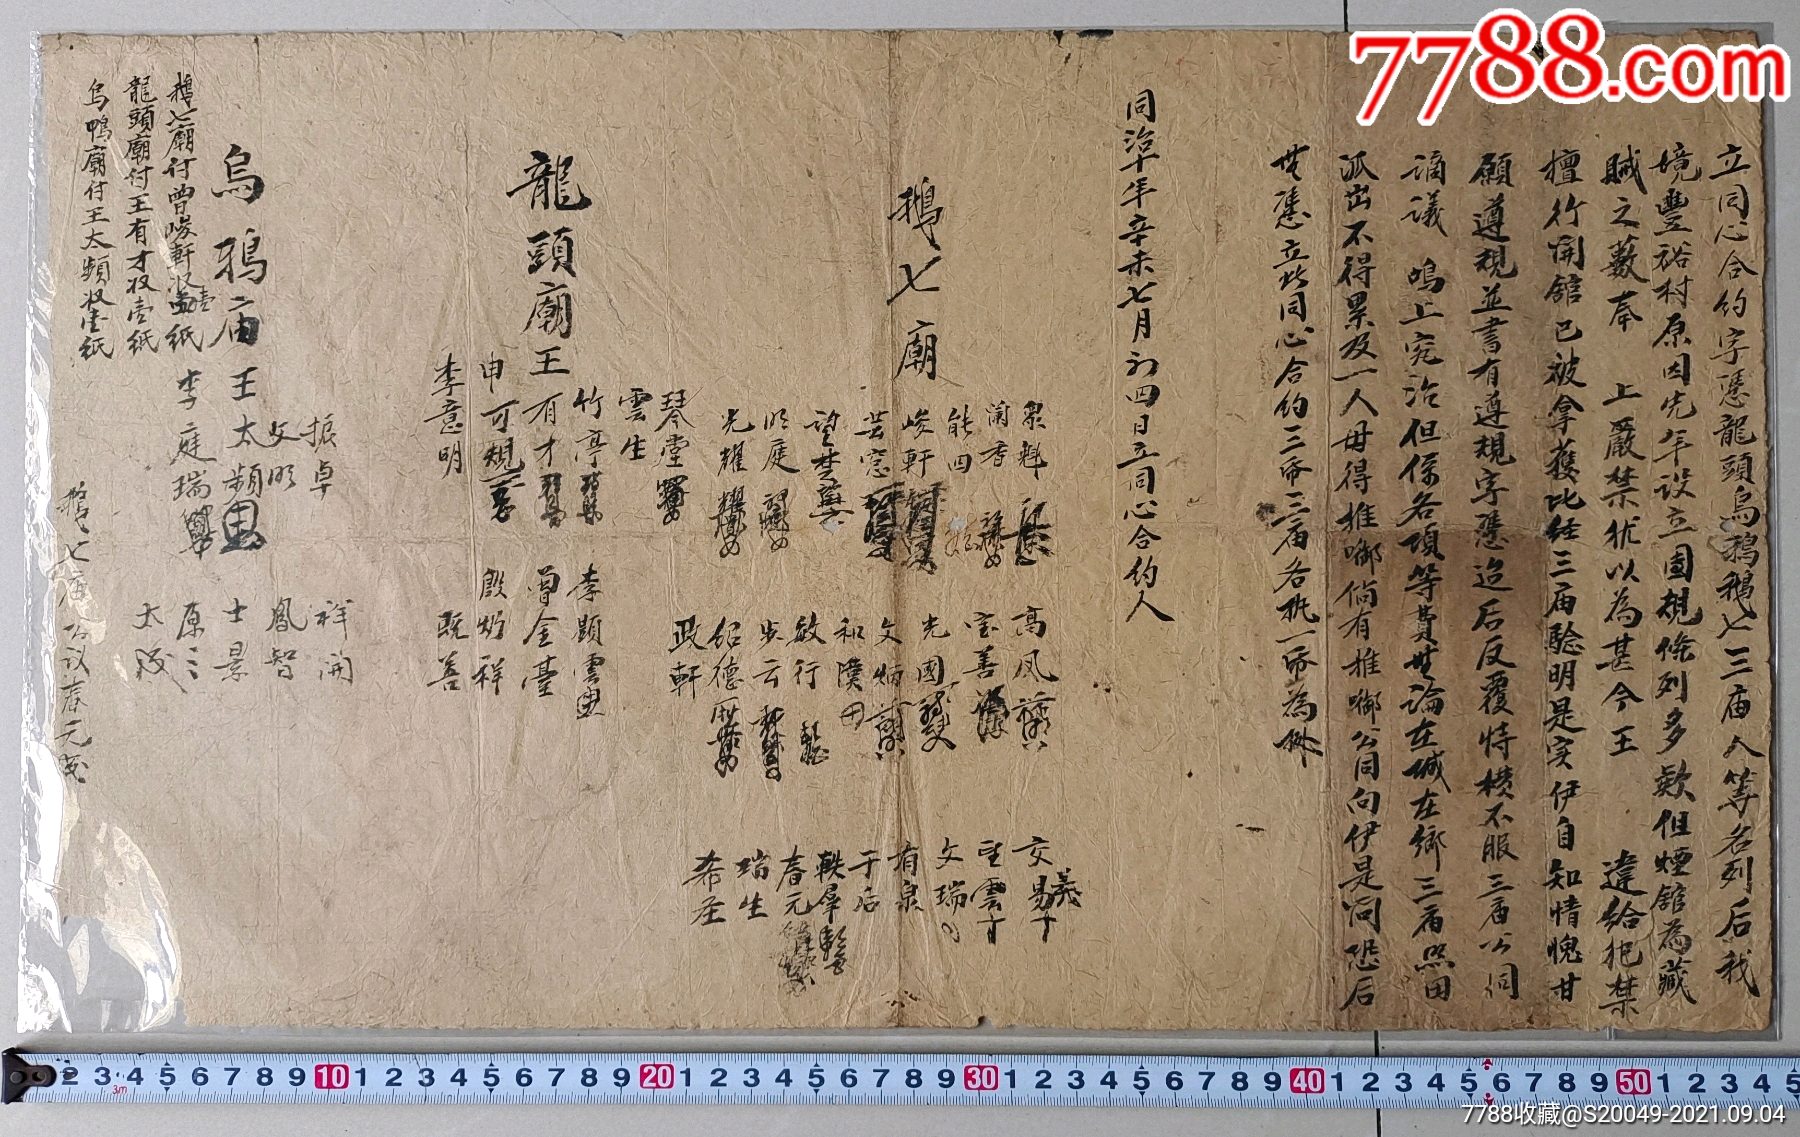 7788.com
立同心合約字憑龍頭烏鴉鵝七三庙人等名列后我
境豐裕村原因先年設立團規條列多款但煙館為藏
賊之藪奉 上嚴禁犹以為甚今王 違給犯禁
擅行開舘已被拿獲比経三庙驗明是实伊自知情愧甘
願遵規並書有遵規字憑迨后反覆恃横不服三庙公同
謫議 鳴上究治但係各項等費世論在城在鄉三庙照田
派出不得累及一人毋得推卸倘有推卸公同向伊是问恐后
世憑立此同心合約三帋三庙各执一帋為㨿
同治十年辛未七月初四日立同心合約人
鵝七廟
泉魁
蘭香
能四
峻軒
芸窓
望楚
明庭
光耀
琴堂
雲生
高鳳
宝善
光國
文炳
和璞
敏行
步云
紹德
政軒
文瑞
有泉
于后
軼羣
春元
瑞生
希圣
龍頭廟
竹亭
王有才
申可規
李意明
李顕雲
曾金臺
殷炳祥
既善
烏鴉庙
振卓
文明
王太頻
李庭瑞
祥開
鳳智
士景
原三
太設
鵝七廟付曾峻軒收壹紙
龍頭廟付王有才收壹紙
烏鴨廟付王太頻收壹紙
鵝七庙公议春元
2 3 4 5 6 7 8 9 10 1 2 3 4 5 6 7 8 9 20 1 2 3 4 5 6 7 8 9 30 1 2 3 4 5 6 7 8 9 40 1 2 3 4 5 6 7 8 9 50 1 2 3 4 5
3m
7788收藏@S20049-2021.09.04